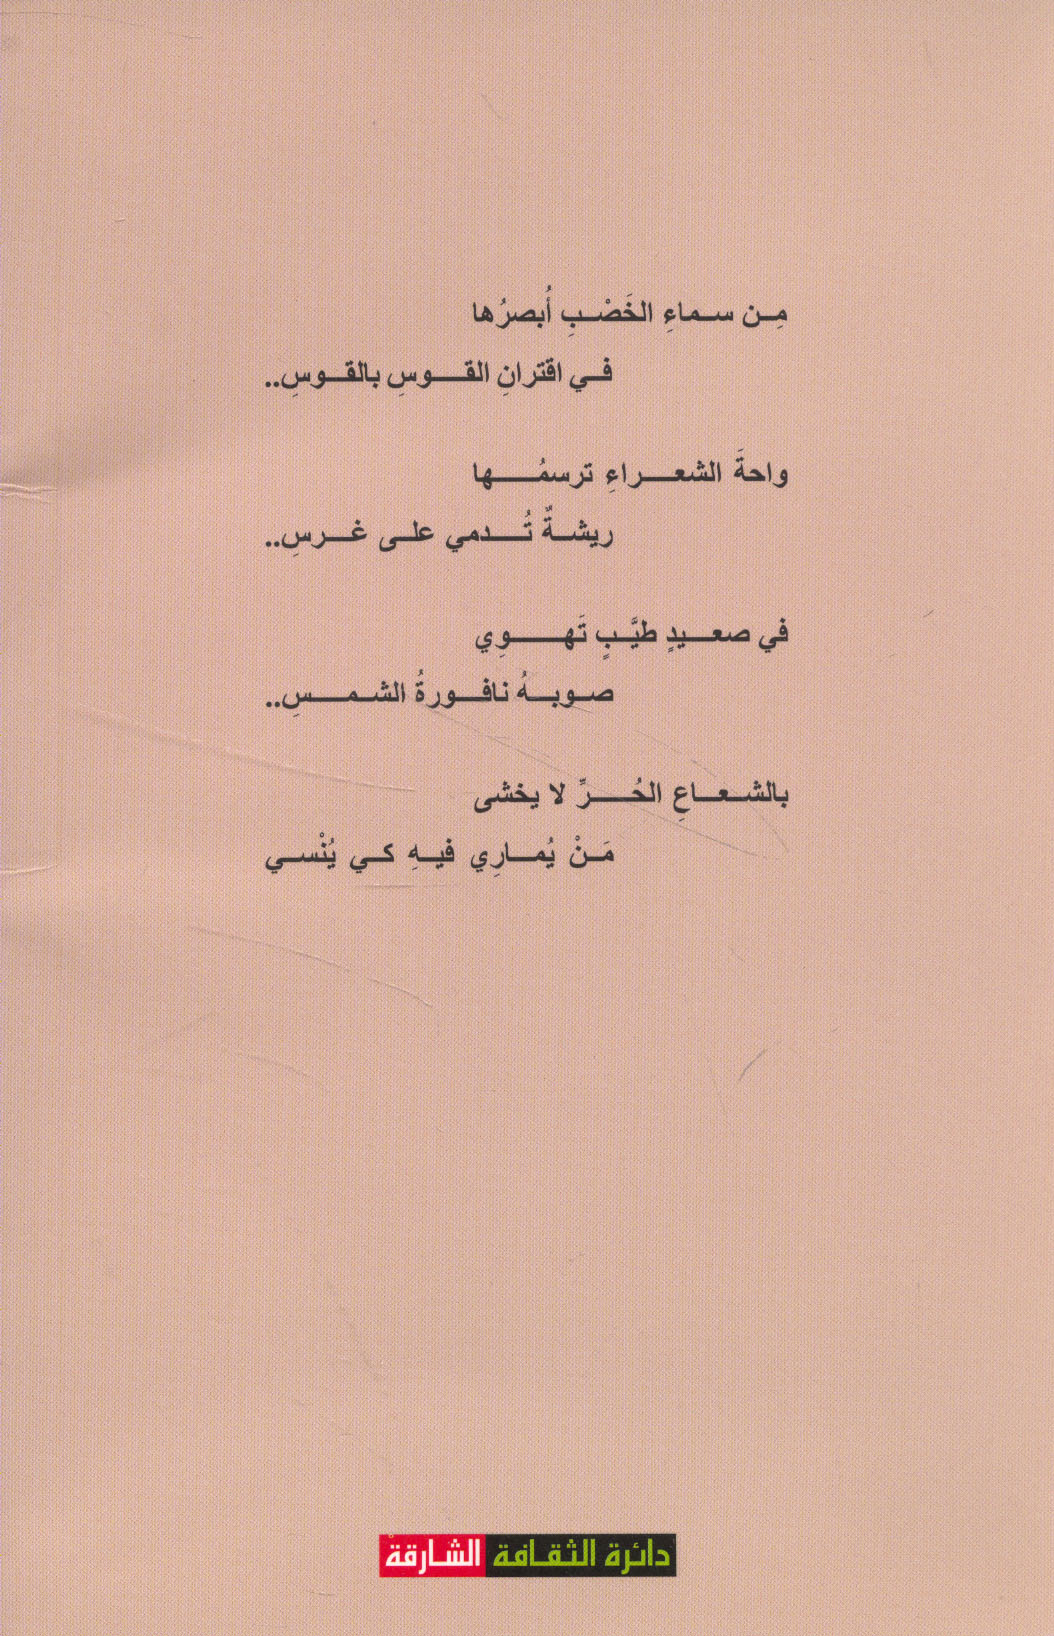 مِن سماءِ الخَصْبِ أُبصرُها
في اقترانِ القوسِ بالقوسِ..
واحةَ الشعراءِ ترسمُها
ريشةٌ تُدمي على غرسِ..
في صعيدٍ طيَّبٍ تَهوِي
صوبهُ نافورةُ الشمسِ..
بالشعاعِ الحُرِّ لا يخشى
مَنْ يُمارِي فيهِ كي يُنْسي
دائرة الثقافة الشارقة